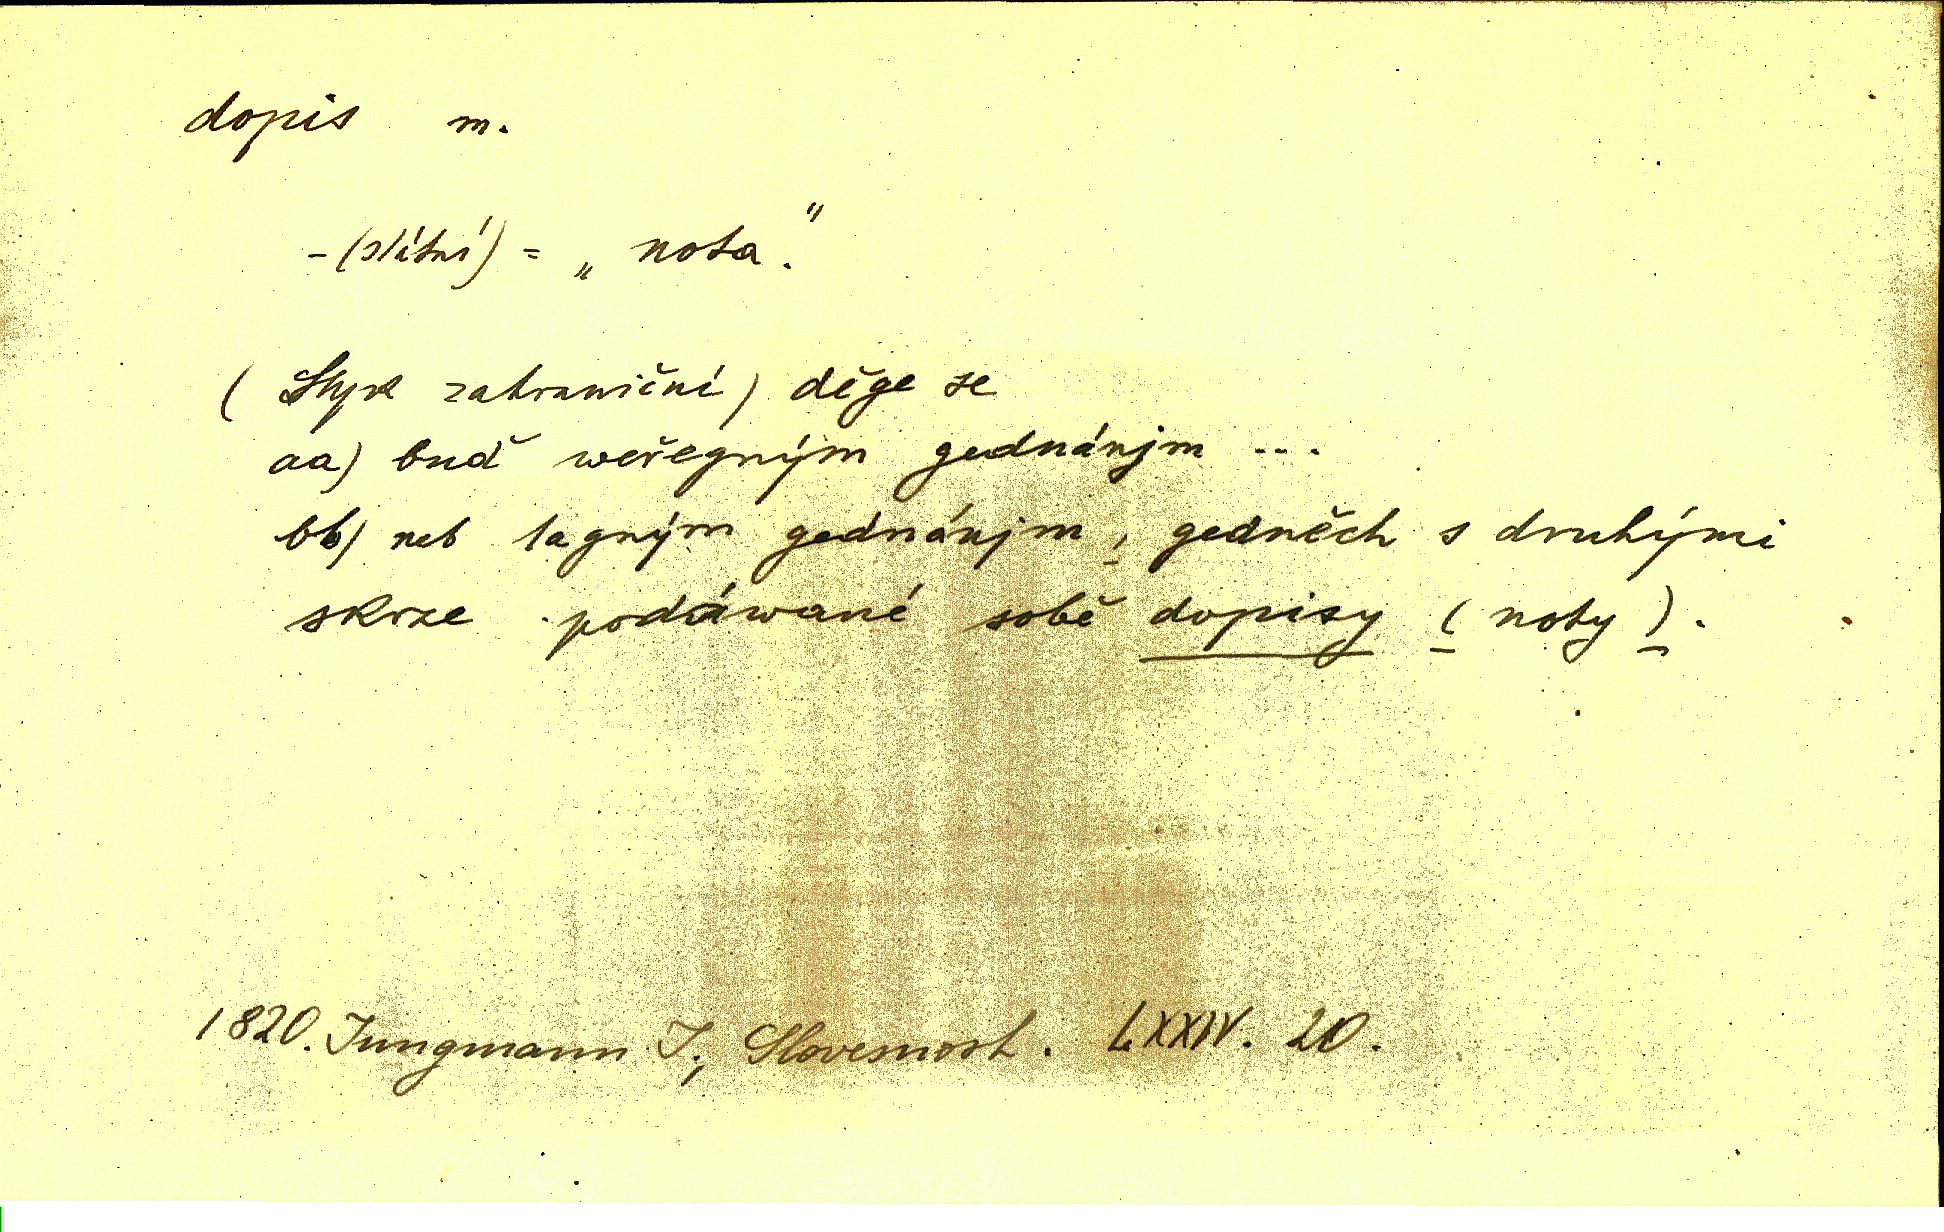 dopis m.
– (státní) = „nota."
( Styk zahraniční) děge se
aa) buď weřegným gednánjm ...
bb) neb tagným gednánjm, gedněch s druhými
skrze podáwané sobě dopisy (noty).
1820. Jungmann J., Slovesnost. LXXIV. 20.